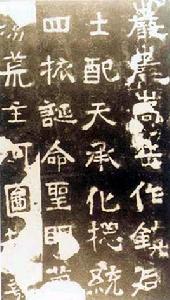 巖巖嵩岳作鎮后
土配天承化捴統
四旅誕命聖明
荒主河圖